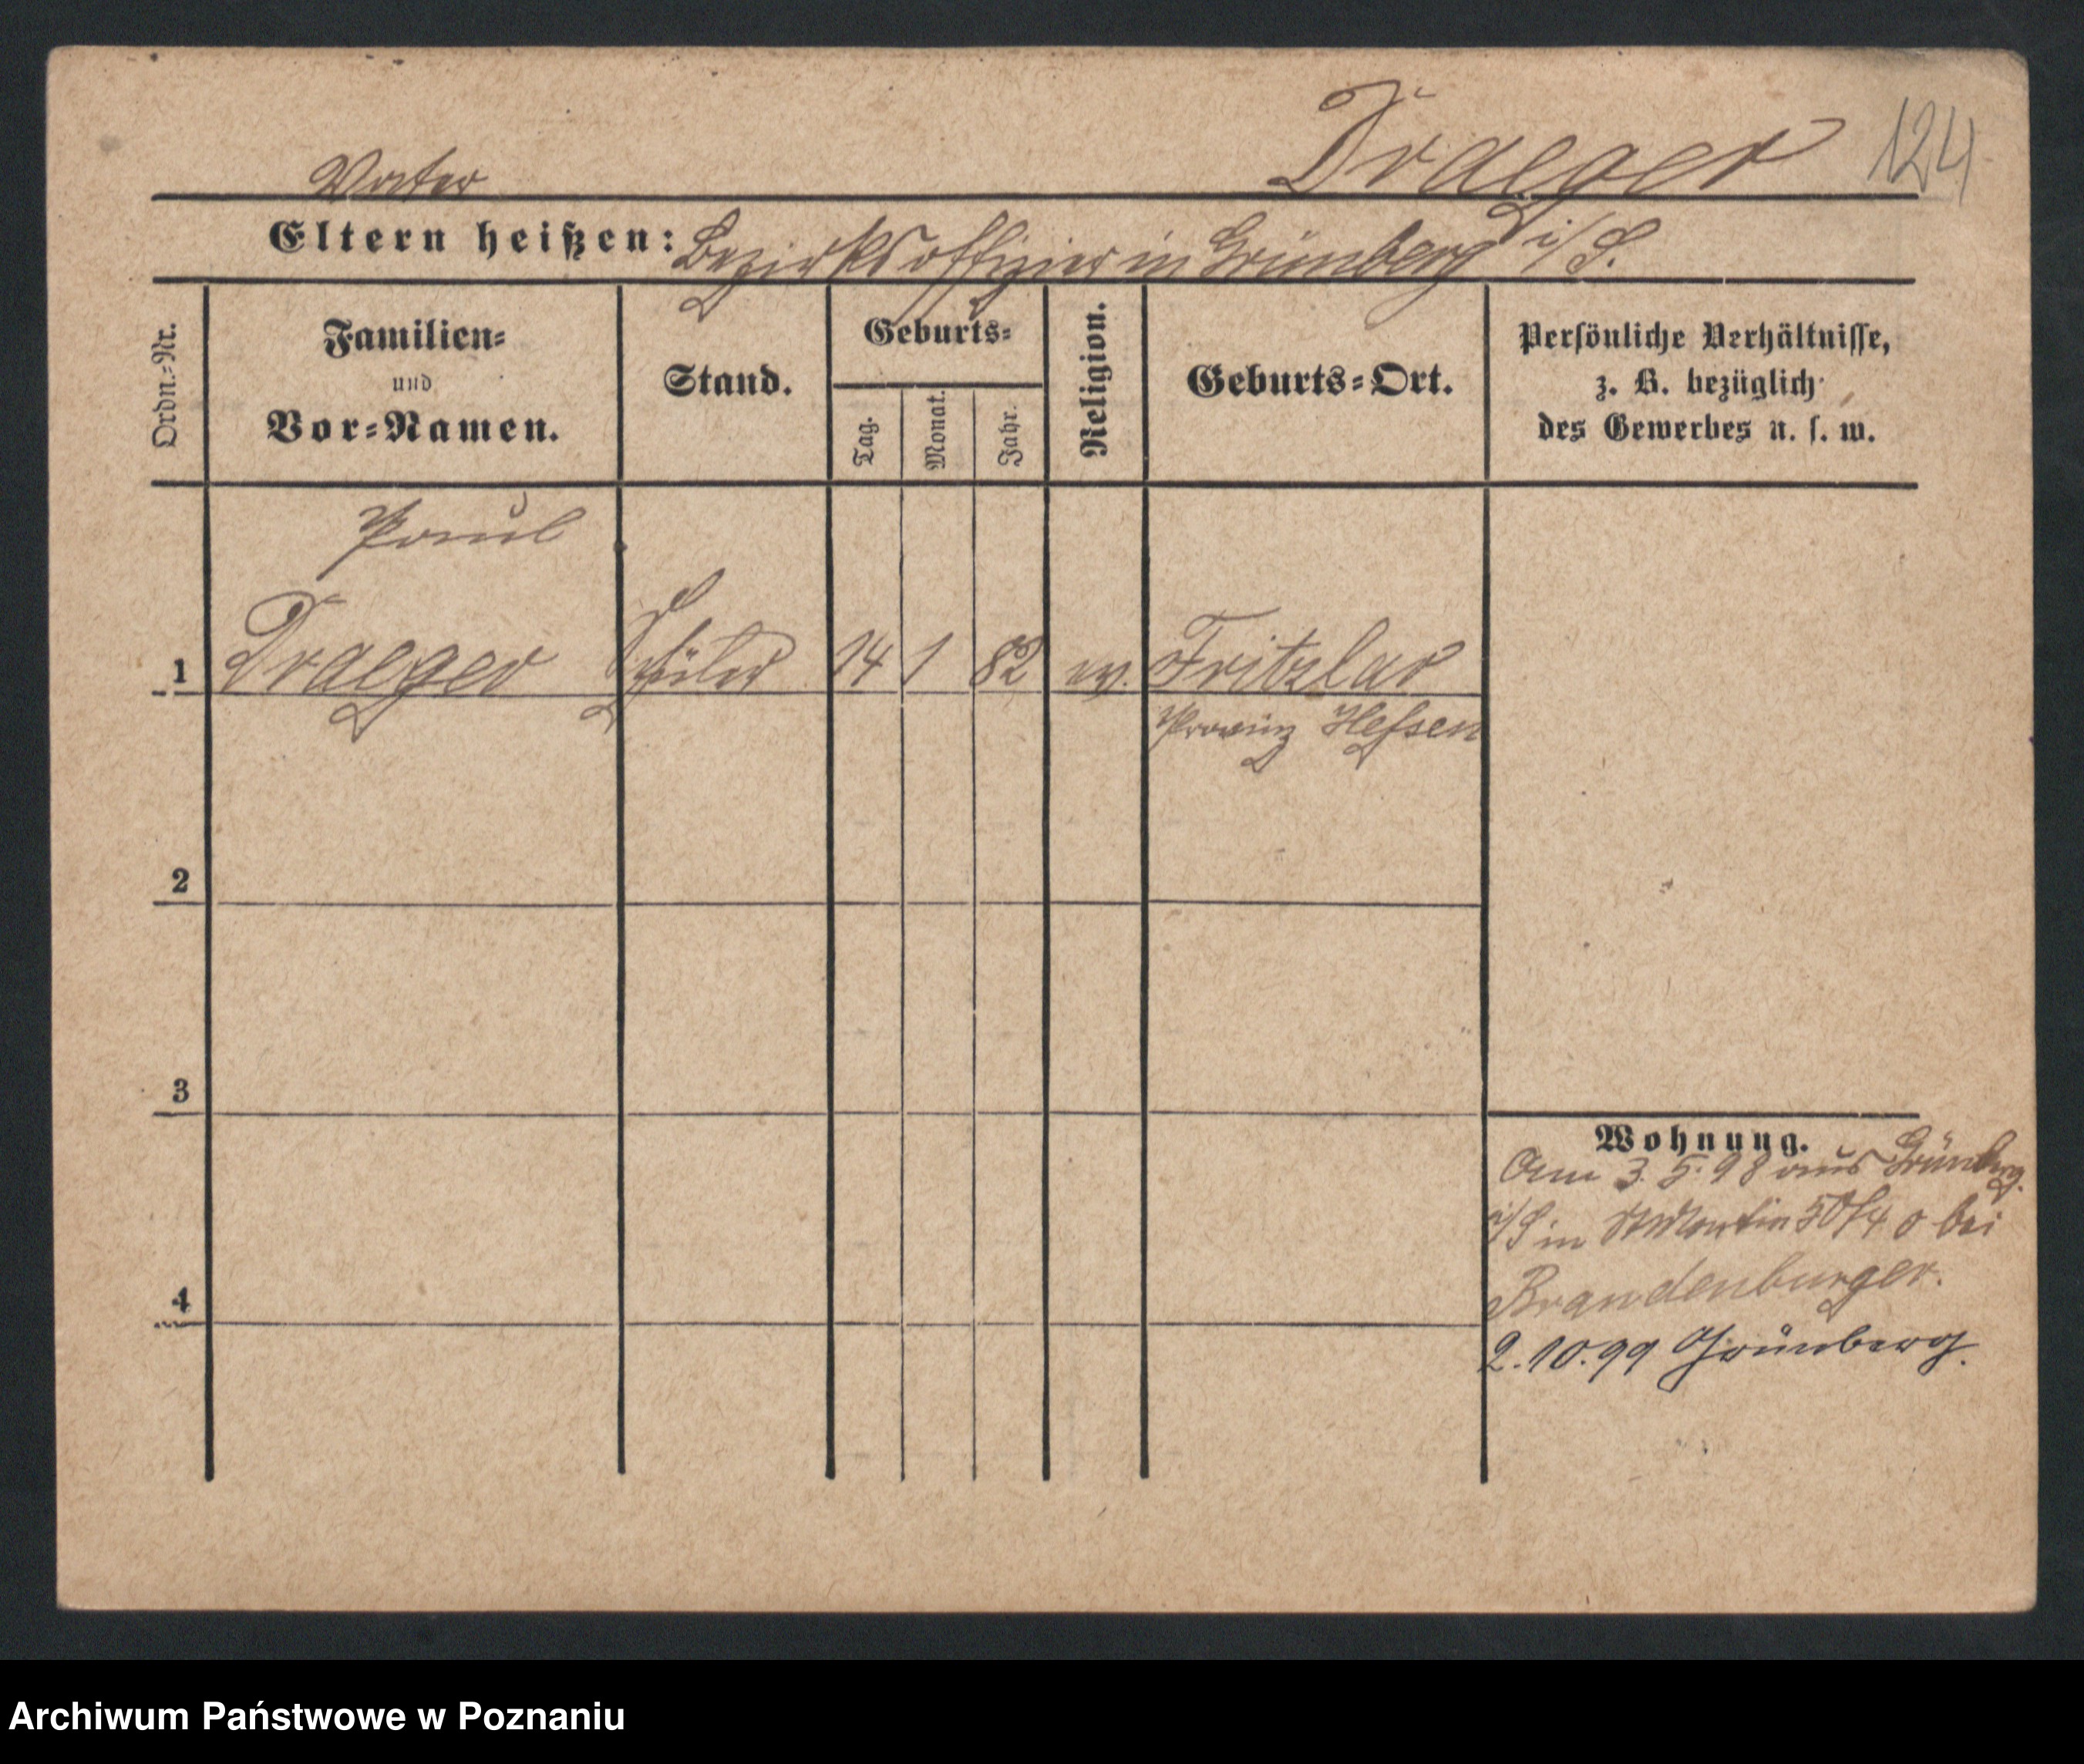 Draeger 124
Vater
Eltern heißen: Bezirksoffizier in Grünberg i/S.
Ordn.-Nr.
Familien-
und
Vor-Namen.
Stand.
Geburts-
Tag.
Monat.
Jahr.
Religion.
Geburts-Ort.
Persönliche Verhältnisse,
z. B. bezüglich
des Gewerbes u. s. w.
Paul
1 Draeger Schüler 14 1 82 ev. Fritzlar
Provinz Hessen
2
3
4
Wohnung.
Am 3. 5. 98 aus Grünberg
i/S in St Martin 50/4 o bei
Brandenburger.
2.10.99 Grünberg.
Archiwum Państwowe w Poznaniu